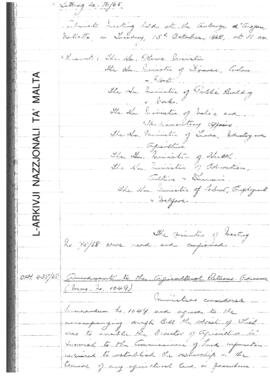 Meeting No. 76/68.
Cabinet Meeting held at the Auberge d'Aragon
Valletta on Tuesday, 15th October, 1968, at 11 am.
Present: The Hon. Prime Minister
The Hon Minister of Finance, Customs
& Ports
The Hon Minister of Public Building
& Works
The Hon Minister of Justice and
Parliamentary Affairs
The Hon Minister of Trade, Industry and
Agriculture
The Hon Minister of Health
The Hon Minister of Education,
Culture & Tourism
The Hon Minister of Labour, Employment
& Welfare
The minutes of Meeting
No. 75/68 were read and confirmed.
OPM 435/65
Amendments to the Agricultural Returns
(Memo. No. 1049)
Ministers considered
Memorandum No. 1049 and agreed to the
accompanying draft Bill the object of which
was to enable the Director of Agriculture to
to the Commissioner of Land information
required to establish the ownership or the
of any agricultural land in
L-ARKIVJI NAZZJONALI TA' MALTA